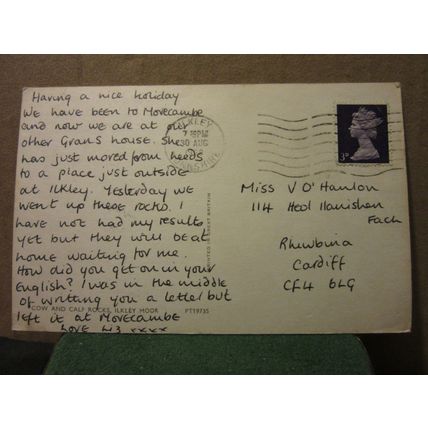 Having a nice holiday
We have been to Morecambe
and now we are at our
other Grans house. She
has just moved from Leeds
to a place just outside
at Ilkley. Yesterday we
went up these rocks. I
have not had my results
yet but they will be at
home waiting for me.
How did you get on in your
English? I was in the middle
of writing you a letter but
left it at Morecambe
Love
xxxx
COW AND CALF ROCKS, ILKLEY MOOR
PT19735
PRINTED IN GREAT BRITAIN
ILKLEY
30 AUG
YORKSHIRE
3D
Miss V O'Hanlon
114 Heol llanishen
Fach
Rhiwbina
Cardiff
CF4 6LG